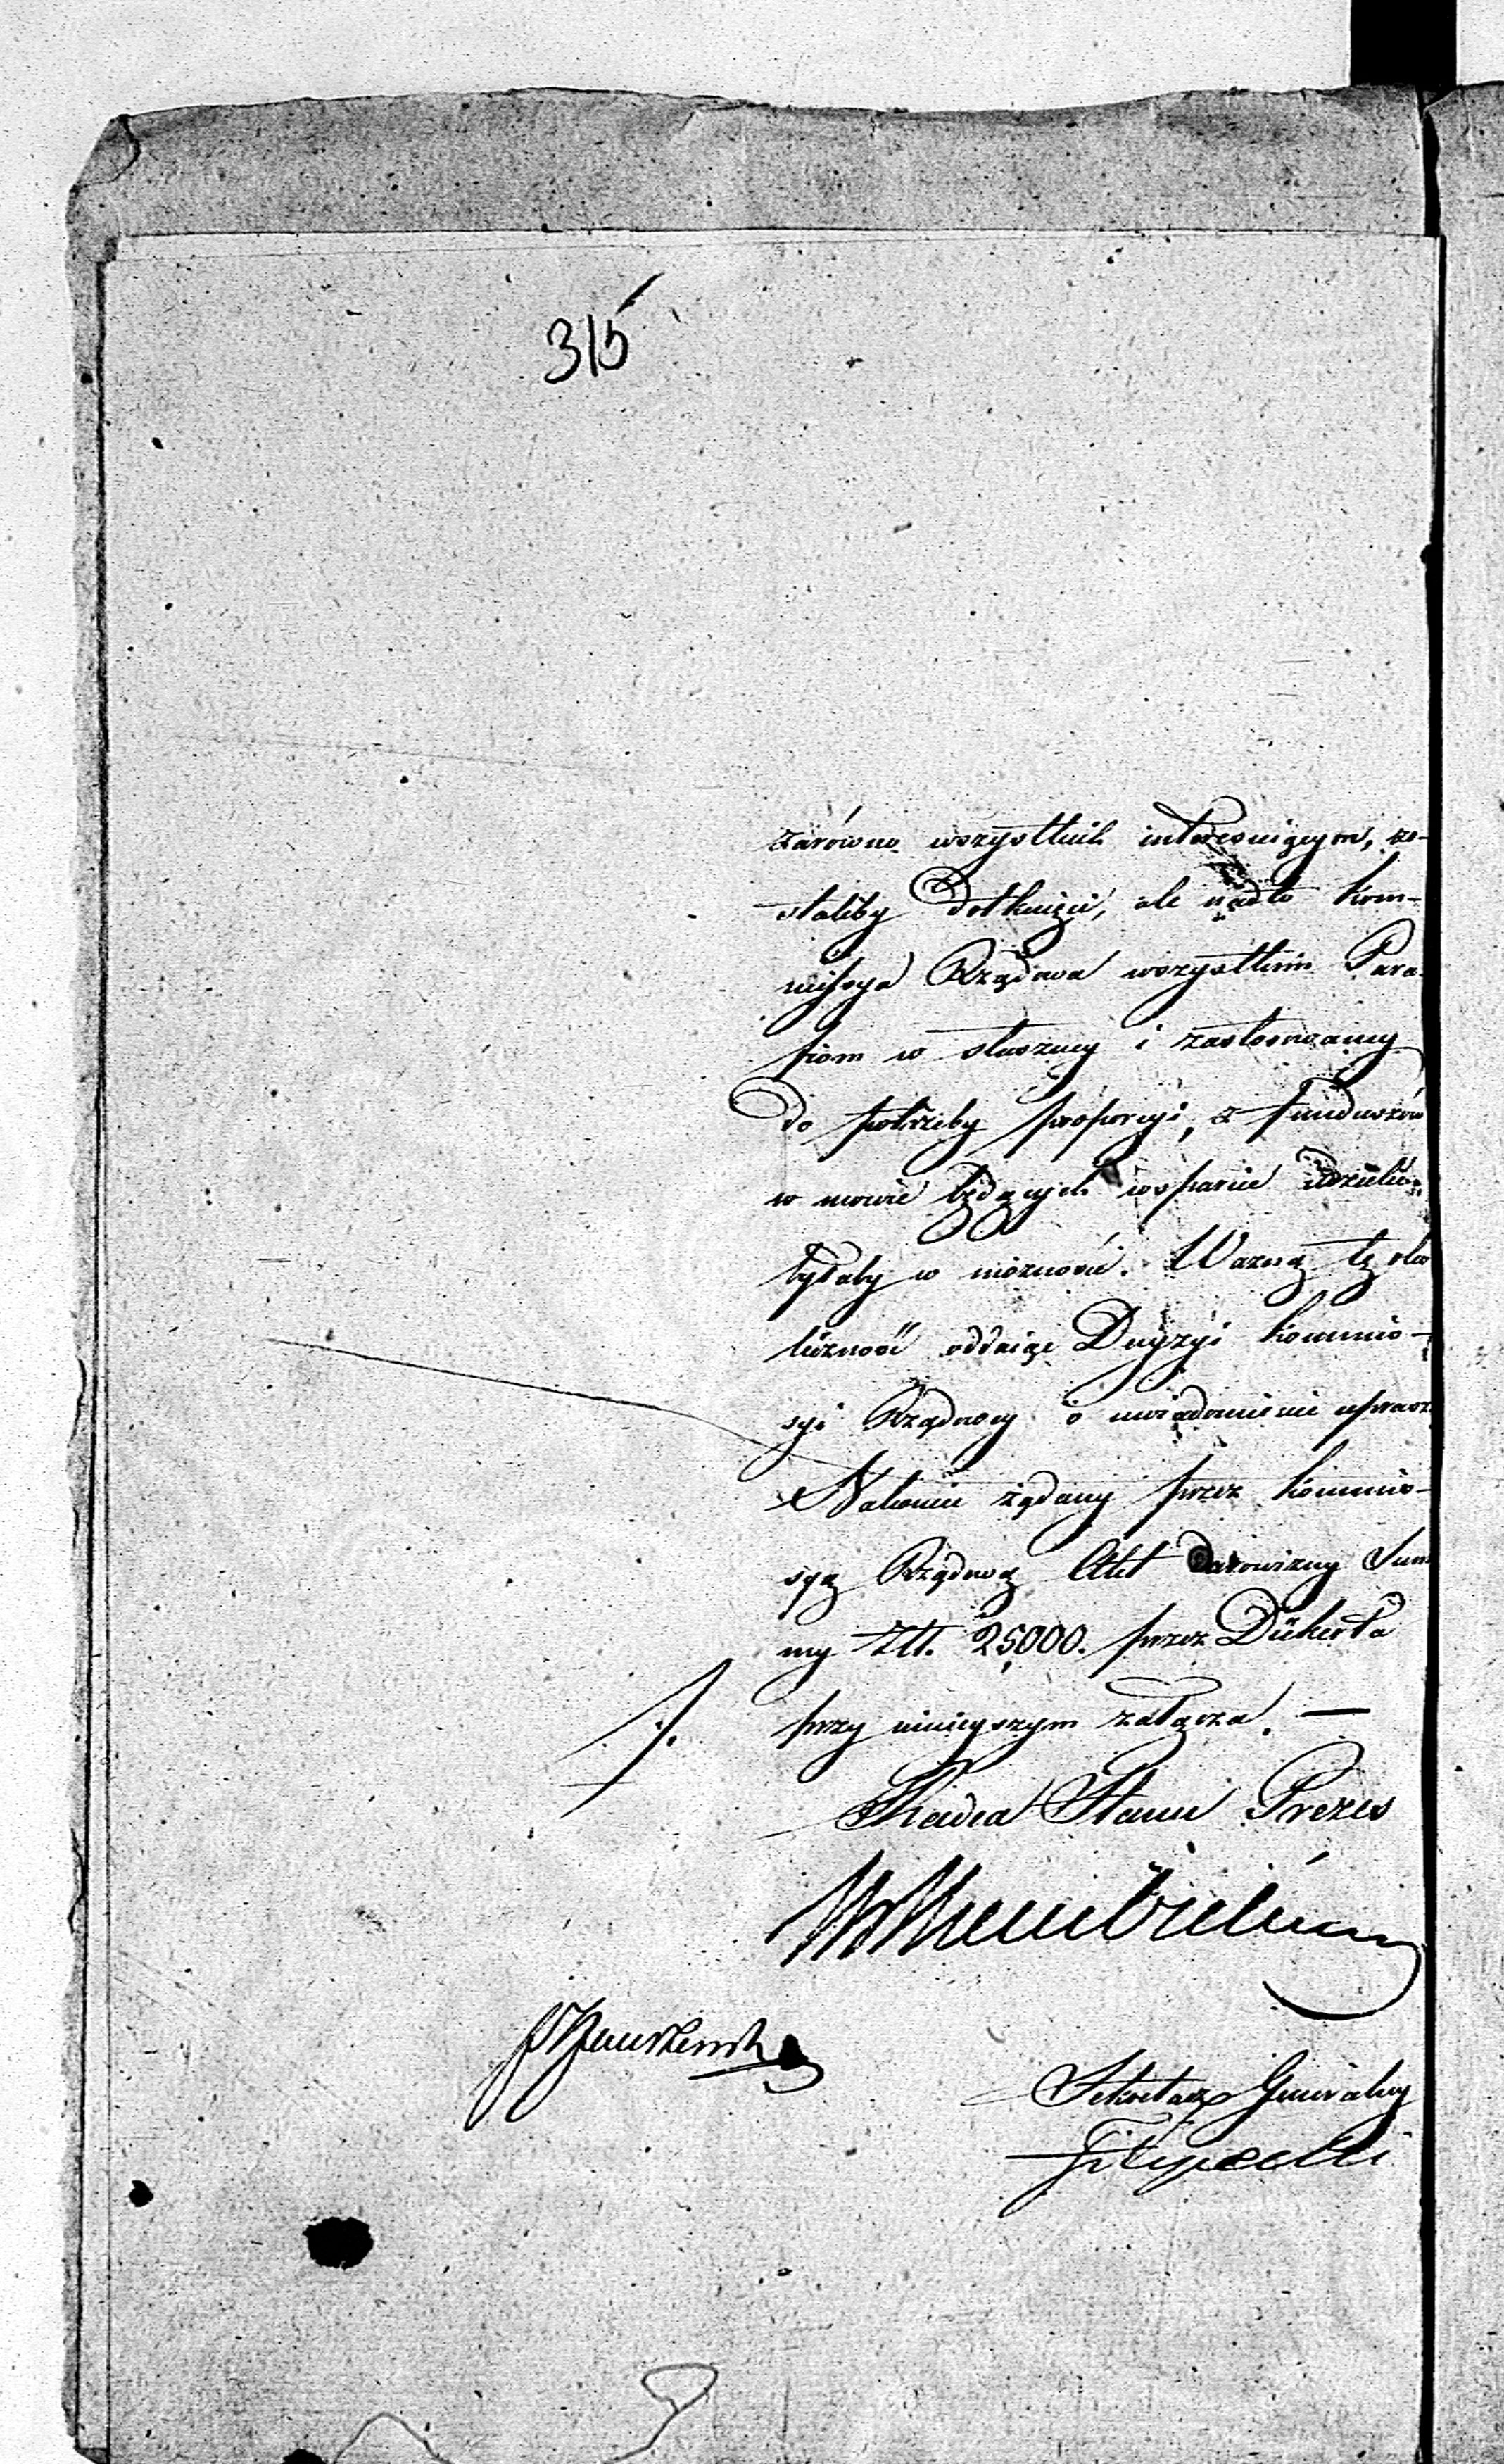 315
zarówno wszystkich interesuiących, zo-
staliby dotknięci, ale nadto Kom-
missya Rządowa wszystkim Para-
fiom w słuszney i zastosowaney
do potrzeby proporcyi, z funduszów
w mowie będących wsparcie udzielić
byłaby w możności. Ważną tę oko
liczność oddaiąc Decyzyi Kommis-
syi Rządowey o uwiadomienie uprasz
Nakoniec żądany przez Kommis-
syą Rządową Akt darowizny Sum
my Złt. 25,000. przez Dückerta
przy ninieyszym załącza. —
Radca Stanu Prezes
Sekretarz Generalny
Filipecki